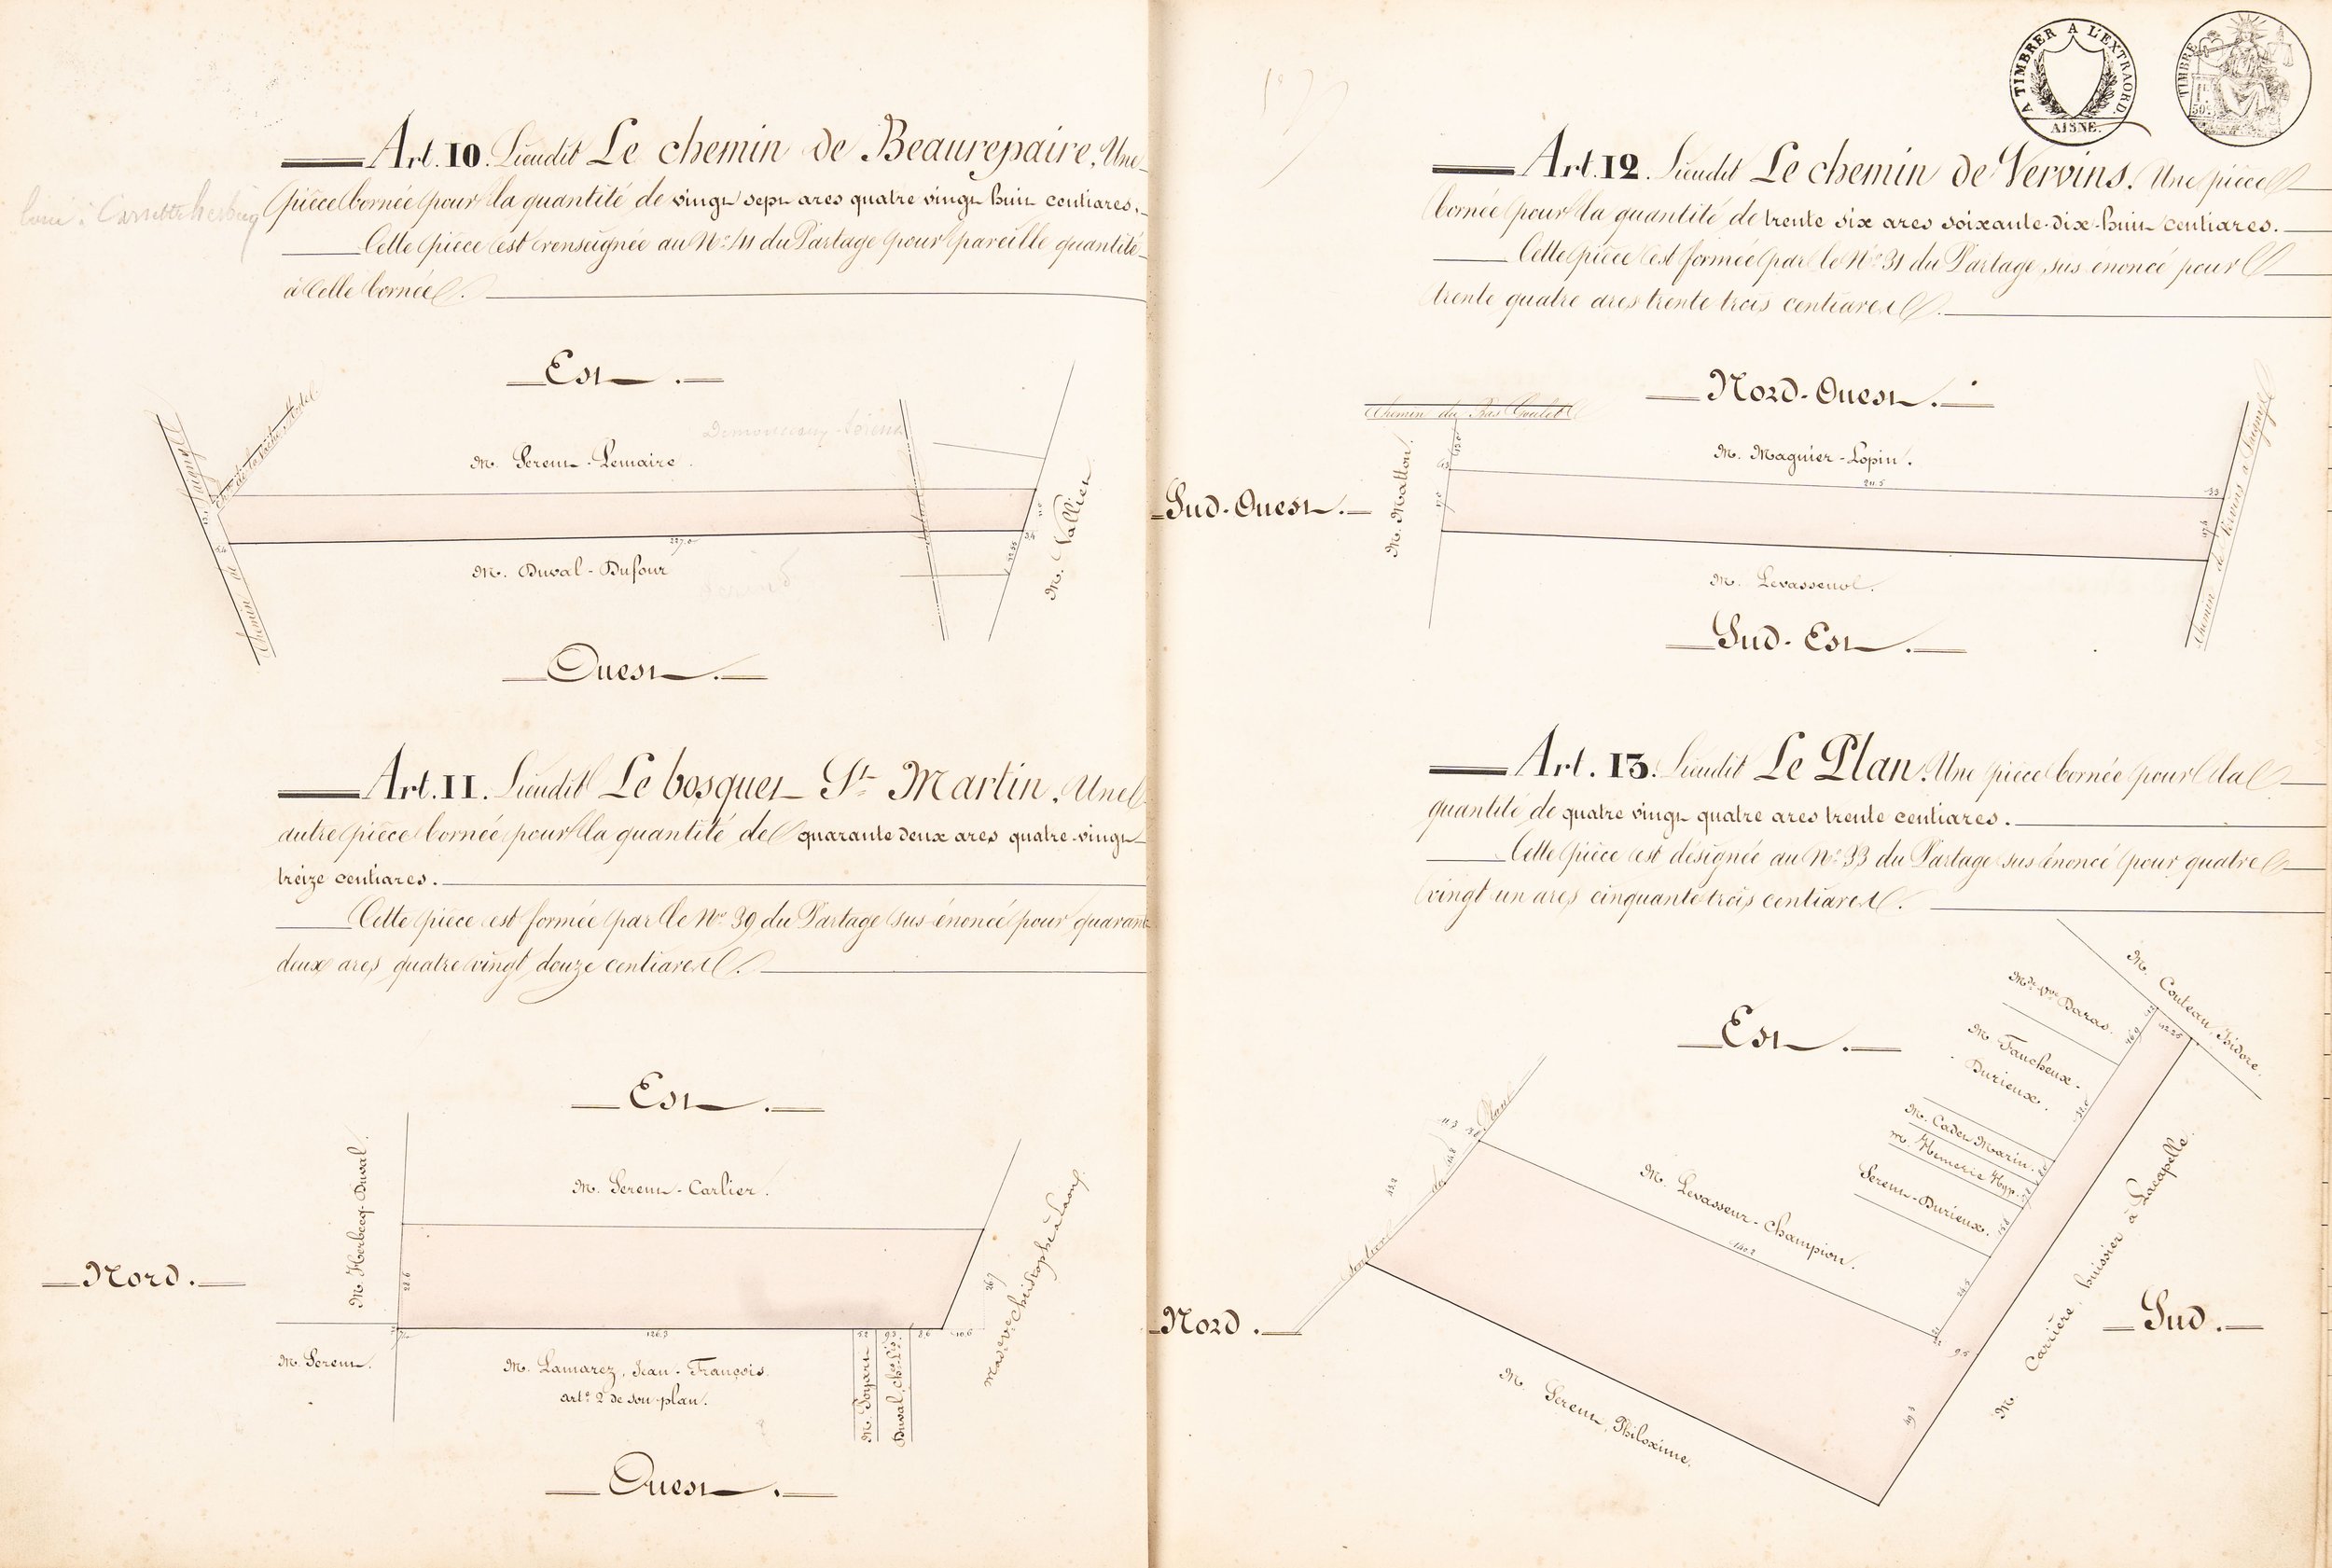 Art. 10. Lieudit Le chemin de Beaurepaire, Une
pièce bornée pour la quantité de vingt sept ares quatre vingt huit centiares.
Cette pièce est renseignée au N° 41 du Partage pour pareille quantité
à celle bornée.
Est.
M. Serent-Lemaire.
M. Duval-Dufour
M. Vallier
Chemin de
227.0
Ouest.
Art. 11. Lieudit Le bosquet St Martin, Une
autre pièce bornée pour la quantité de quarante deux ares quatre-vingt
treize centiares.
Cette pièce est formée par le N° 39 du Partage sus énoncé pour quarante
deux ares quatre vingt douze centiares.
Est.
M. Serent-Carlier.
M. Herbecq-Duval.
Nord.
22.6
126.3
5.2
9.3
8.6
10.6
26.7
M. Serent.
M. Lamarez, Jean-François.
art. 2 de son plan.
Ouest.
A TIMBRER A L'EXTRAORD.
AISNE.
TIMBRE
Art. 12. Lieudit Le chemin de Vervins. Une pièce
bornée pour la quantité de trente six ares soixante-dix-huit centiares.
Cette pièce est formée par le N° 31 du Partage sus énoncé pour
trente quatre ares trente trois centiares.
Nord-Ouest.
Chemin du Bas Goulet
M. Magnier-Lopin.
211.5
Sud-Ouest.
M. Matton.
Chemin de Vervins à
M. Levasseur.
Sud-Est.
Art. 13. Lieudit Le Plan. Une pièce bornée pour la
quantité de quatre vingt quatre ares trente centiares.
Cette pièce est désignée au N° 33 du Partage sus énoncé pour quatre
vingt un ares cinquante trois centiares.
Est.
M. Couteau, Isidore.
Mde Vve Daras.
M. Faucheux-
Durieux.
M. Cadet Marin.
Serent-Durieux.
M. Levasseur-Champion.
140.2
Sentier du Plant
M. Carrière, huissier à Lacapelle.
Nord.
Sud.
M. Serent, Philoxime.